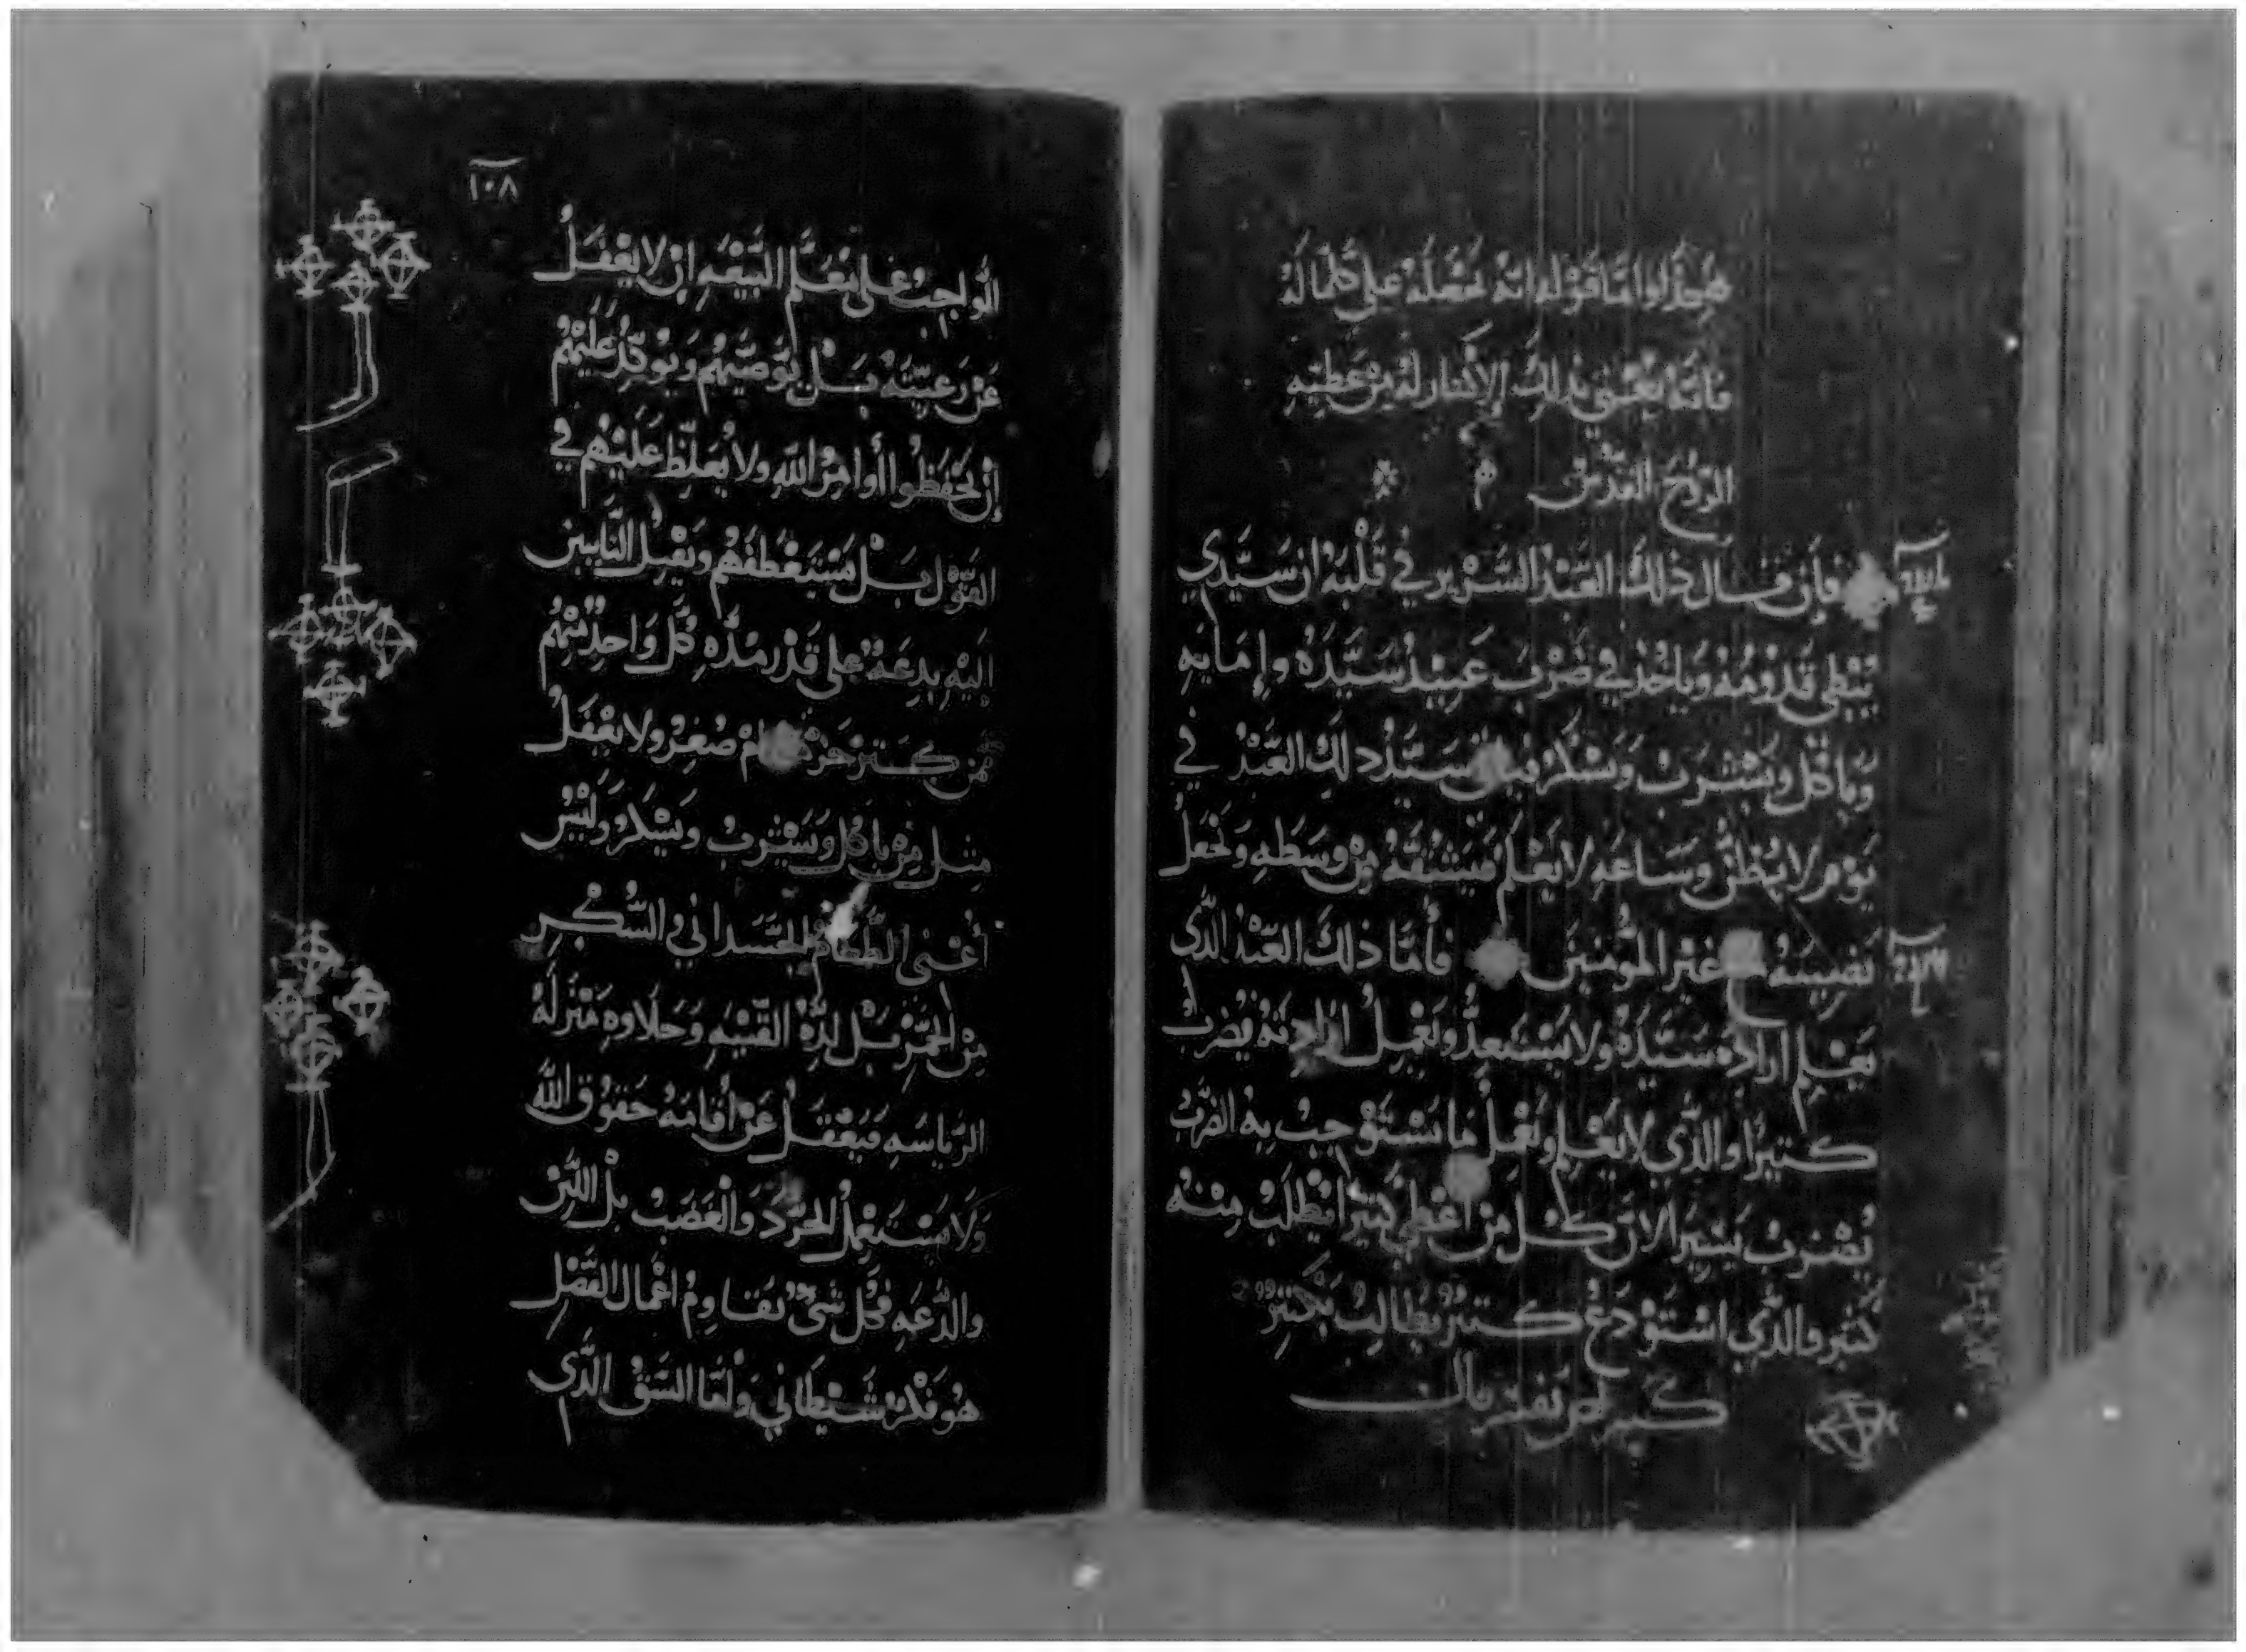 هكذا واما قوله انه يجعله على كلما له
فانه يعني بذلك الاكثار له من عطيه
الروح القدس
فإن قال ذلك العبد الشرير في قلبه ان سيدي
يبطي قدومه وياخذ في ضرب عبيد سيده وإمايه
وياكل ويشرب ويسكر سيد ذلك العبد في
يوم لا يظن وساعه لا يعلم فيشقه من وسطه ويجعل
نصيبه غير المومنين فأما ذلك العبد الذي
يعلم ارادة سيده ولا يستعد ويعمل ارادته يضرب
كثيرا والذي لا يعلم ويعمل ما يستوجب به الضرب
يضرب يسيرا لان كل من اعطي كثيرا يطلب منه
كثير والذي استودع كثير يطالب بكثير
١٠٨
الواجب على معلم البيعه ان لا يغفل
عن رعيته بل يوصيهم ويوكد عليهم
ان يحفظوا أوامر الله ولا يغلظ عليهم في
القول بل يستعطفهم ويقبل التايبين
اليه بدعة على قدر مده كل واحد منهم
من كبر صغر ولا يغفل
مثل من ياكل ويشرب ويسكر وليس
أعني الطعام الجسداني والسكر
من الخمر بل لذة القنيه وحلاوه منزله
الرياسه فيغفل عن أقامه حقوق الله
ولا يستعمل الحرد والغضب بل اللين
والدعه فكل شي يقاوم اعمال الفضل
هو فكر شيطاني ولما السق الذي